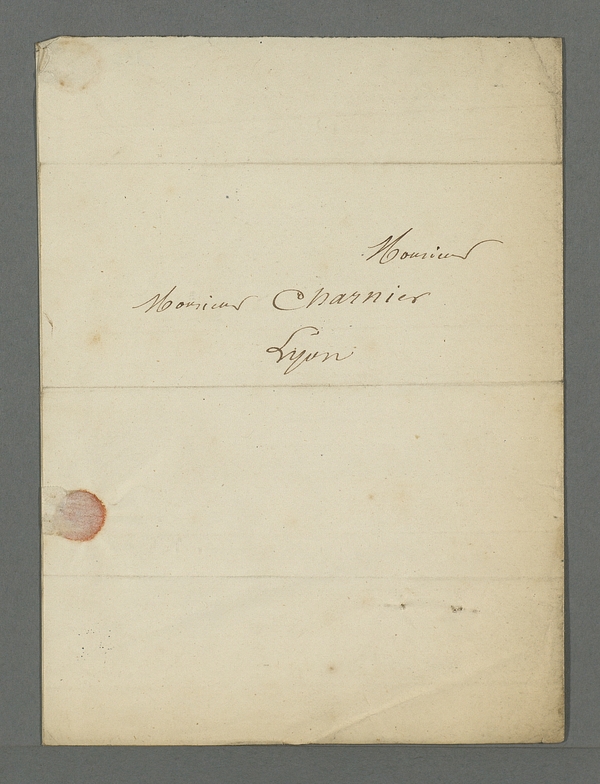 Monsieur
Monsieur Charnier
Lyon